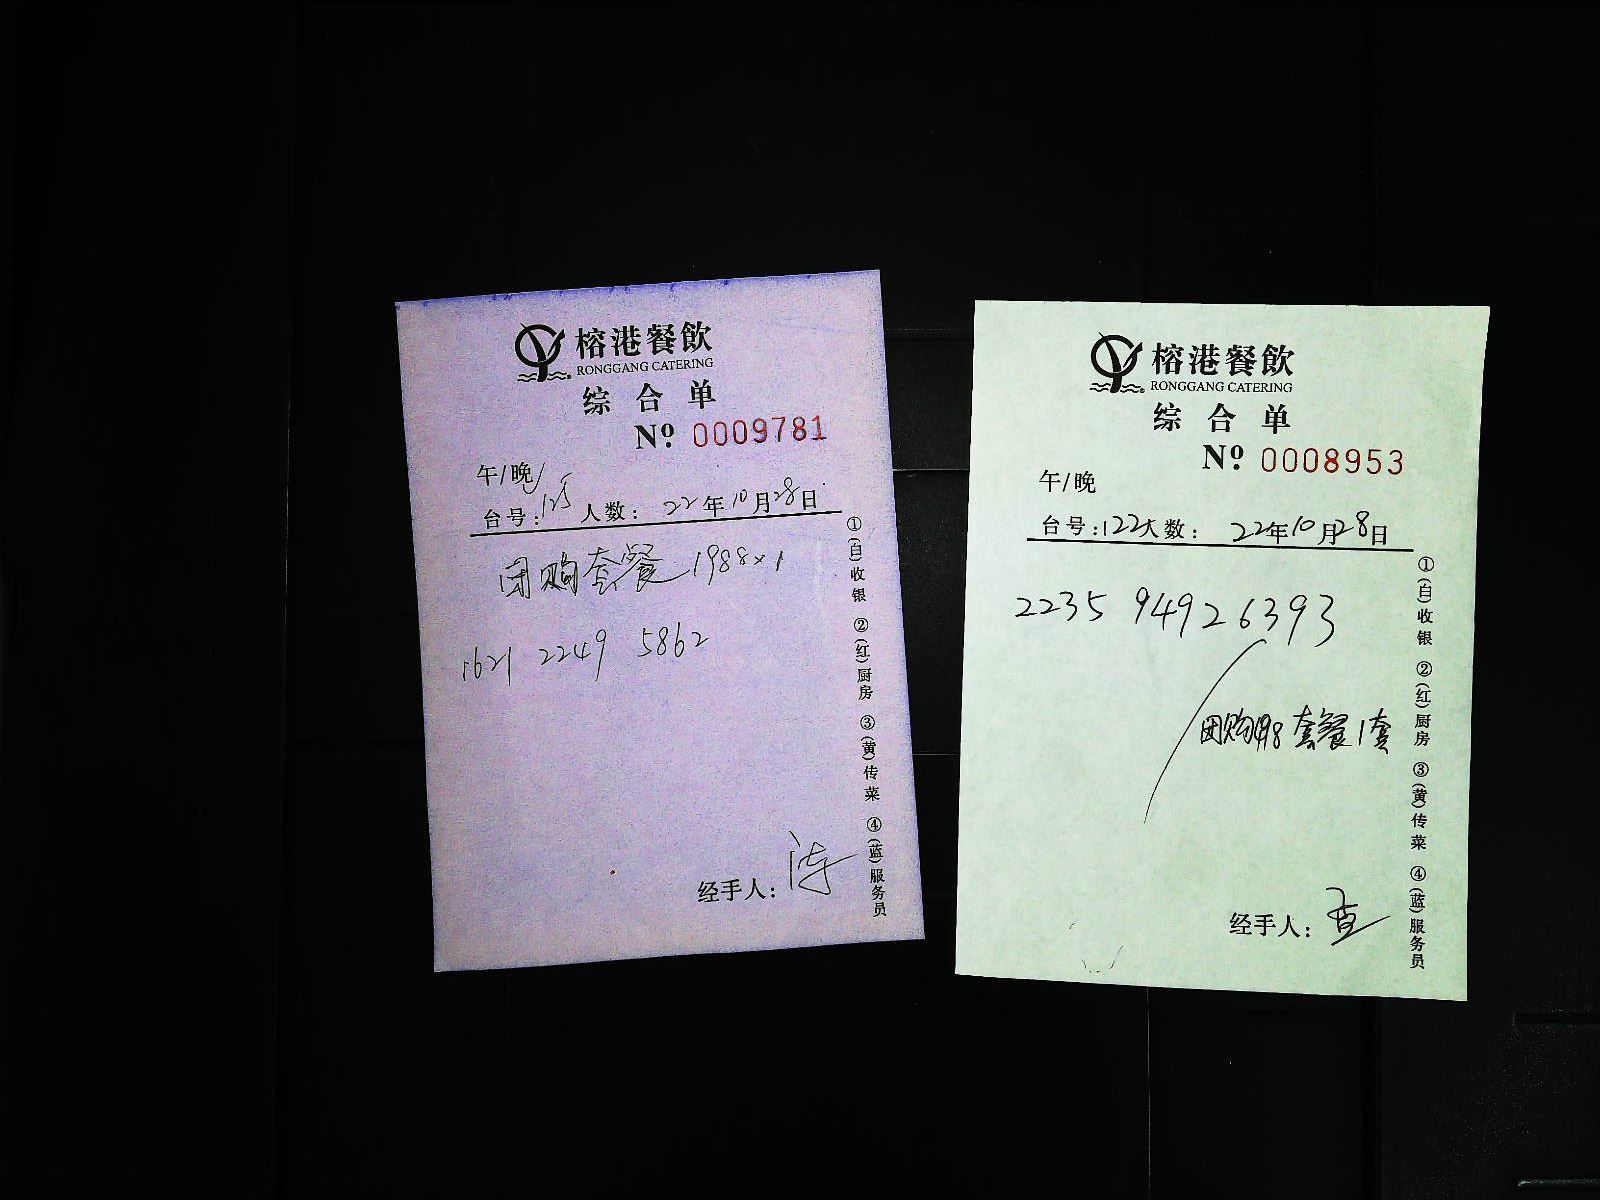 榕港餐飲
RONGGANG CATERING
综合单
Nº 0009781
午/晚
台号:125 人数: 22年10月28日
团购套餐 1988×1
1621 2249 5862
经手人:
①(白)收银 ②(红)厨房 ③(黄)传菜 ④(蓝)服务员
榕港餐飲
RONGGANG CATERING
综合单
Nº 0008953
午/晚
台号:122人数: 22年10月28日
2235 94926393
团购 套餐1套
经手人:
①(白)收银 ②(红)厨房 ③(黄)传菜 ④(蓝)服务员